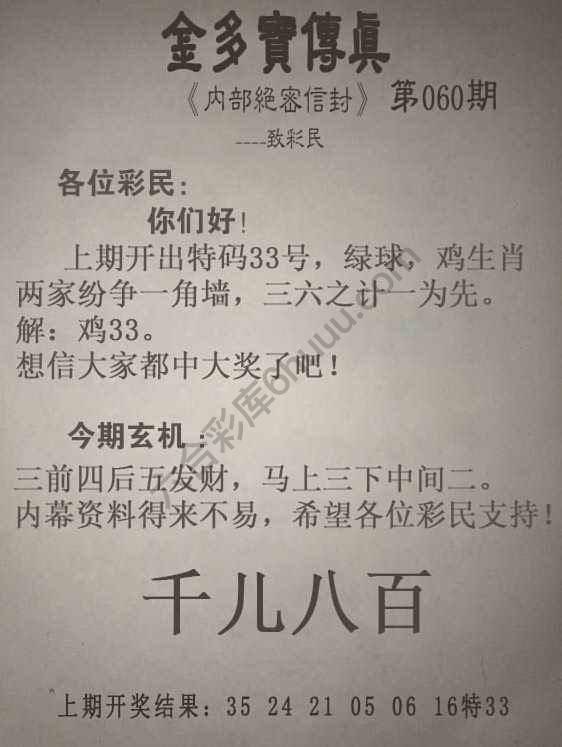 金多寶傳真
《内部絕密信封》 第060期
----致彩民
各位彩民:
你们好!
上期开出特码33号，绿球，鸡生肖
两家纷争一角墙，三六之计一为先。
解：鸡33。
想信大家都中大奖了吧!
今期玄机：
三前四后五发财，马上三下中间二。
内幕资料得来不易，希望各位彩民支持!
千儿八百
上期开奖结果：35 24 21 05 06 16特33
六合彩库6huuu.com